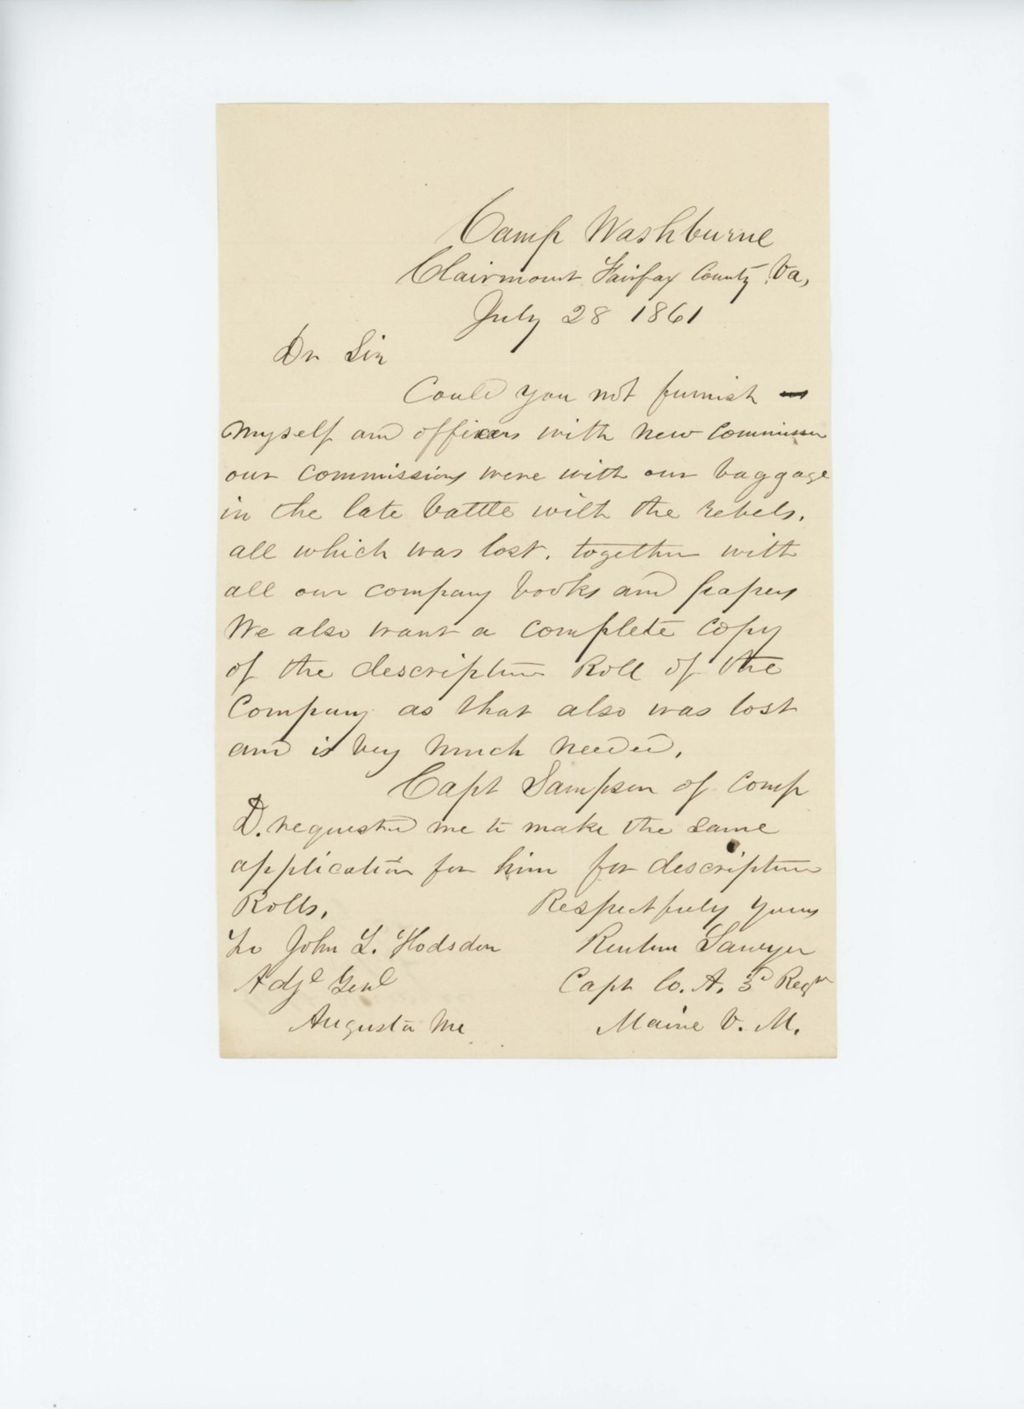 Camp Washburne
Clairmount Fairfax County Va,
July 28 1861
Dr Sir
Could you not furnish
myself and officers with new Commissions
our commissions were with our baggage
in the late battle with the rebels.
all which was lost. together with
all our company books and papers
We also want a complete copy
of the descriptive Roll of the
Company as that also was lost
and is very much needed.
Capt Sampson of Comp
D. requested me to make the same
application for him for descriptive
Rolls.
Respectfully Yours
To John L. Hodsdon
Reuben Sawyer
Adjt Genl
Capt Co. A. 3d Regt
Augusta Me
Maine V. M.